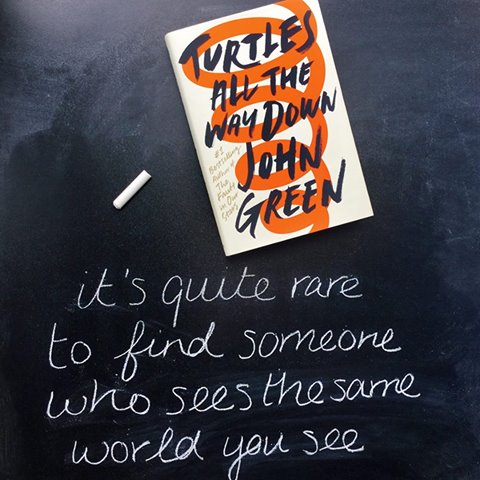 TURTLES
ALL THE
WAY DOWN
JOHN
GREEN
#1
Bestselling
Author of
The
Fault
in Our
Stars
it's quite rare
to find someone
who sees the same
world you see